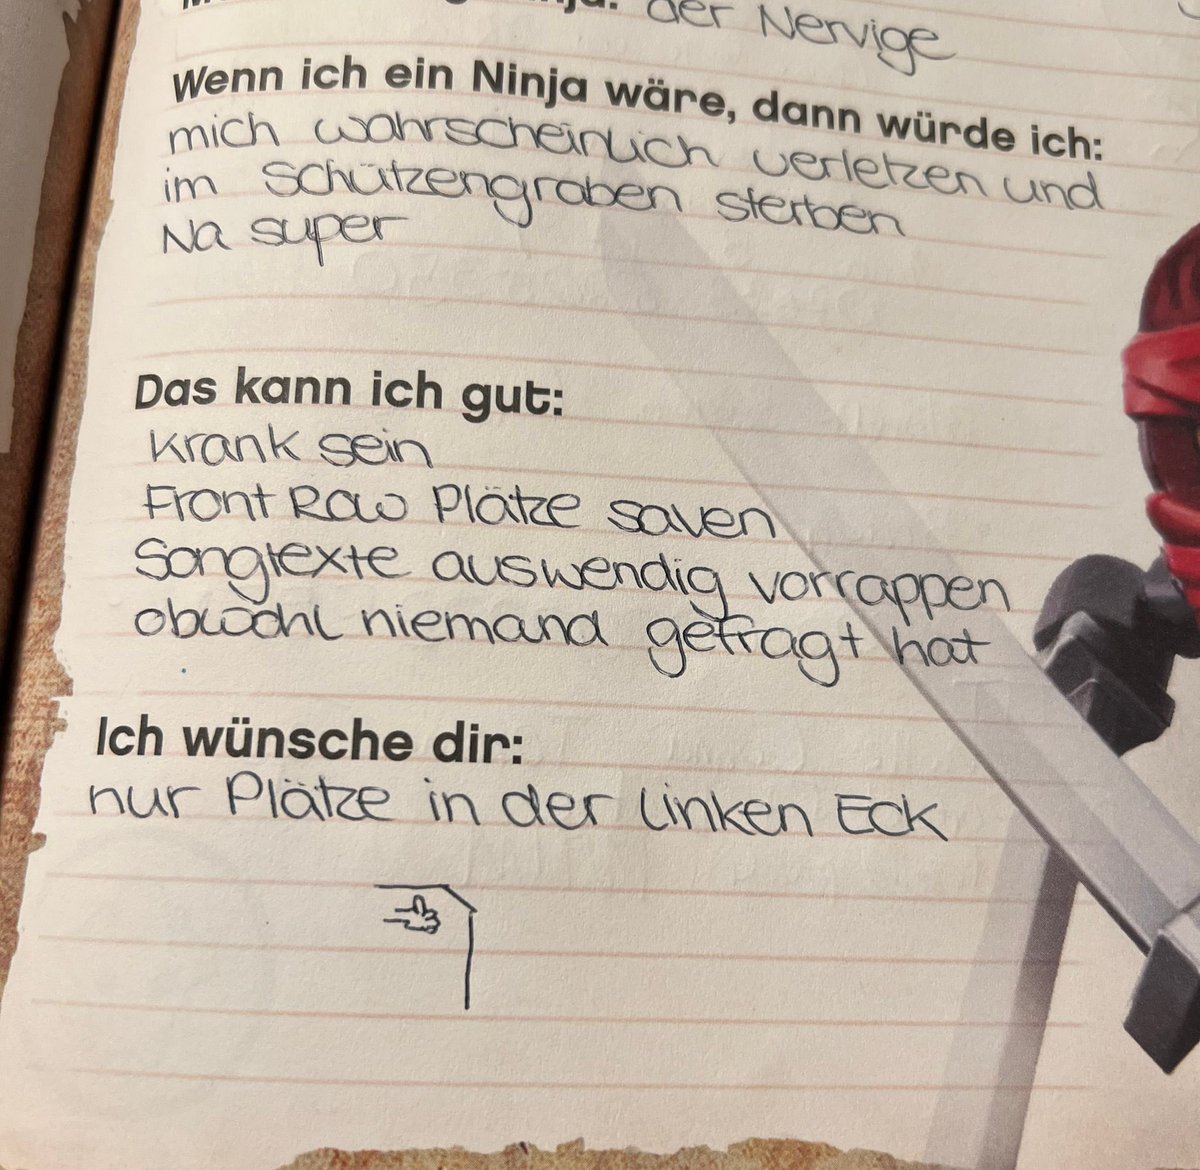 der Nervige
Wenn ich ein Ninja wäre, dann würde ich:
mich wahrscheinlich verletzen und
im Schützengraben sterben
Na super
Das kann ich gut:
Krank sein
Front Row Plätze saven
Songtexte auswendig vorrappen
obwohl niemand gefragt hat
Ich wünsche dir:
nur Plätze in der linken Eck